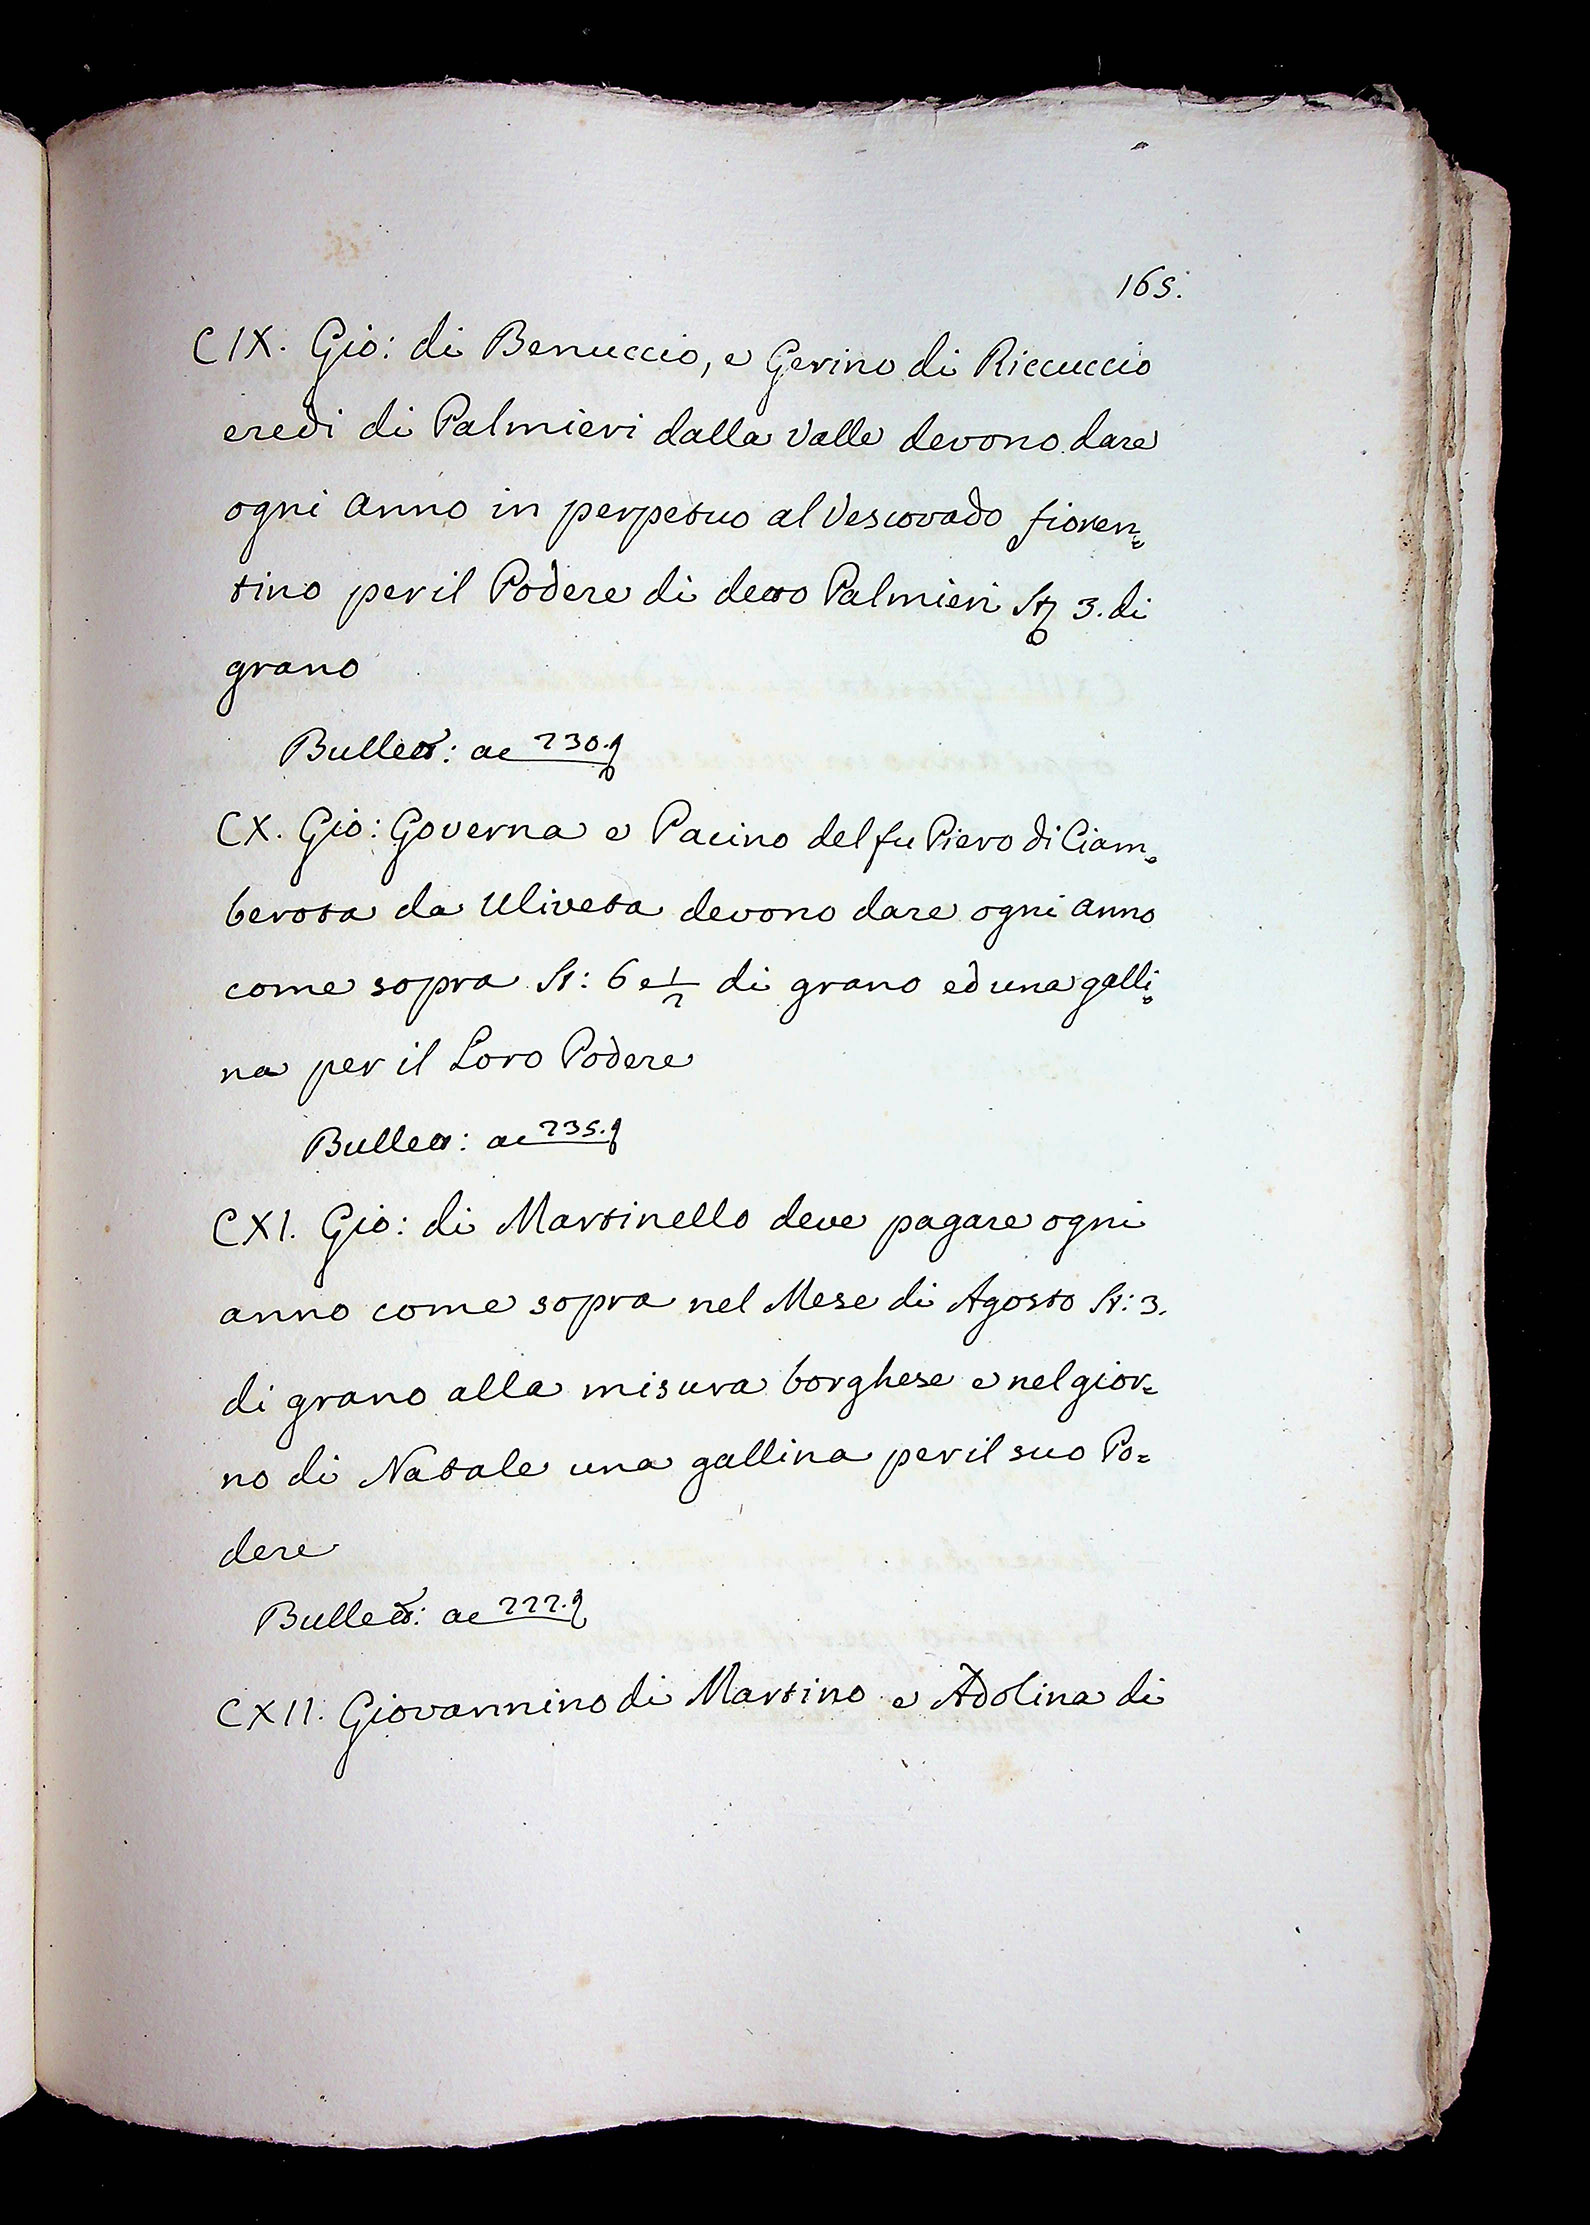 165.
CIX. Gio: di Benuccio, e Gerino di Riccuccio
eredi di Palmieri dalla Valle devono dare
ogni anno in perpetuo al Vescovado fioren=
tino per il Podere di detto Palmieri St 3. di
grano
Bullett: ac 230.
CX. Gio: Governa e Pacino del fu Piero di Ciam=
berota da Uliveta devono dare ogni anno
come sopra St: 6 e 1/2 di grano ed una galli=
na per il Loro Podere
Bullett: ac 235.
CXI. Gio: di Martinello deve pagare ogni
anno come sopra nel Mese di Agosto St: 3.
di grano alla misura borghese e nel gior=
no di Natale una gallina per il suo Po=
dere
Bullett: ac 222.
CXII. Giovannino di Martino e Adolina di